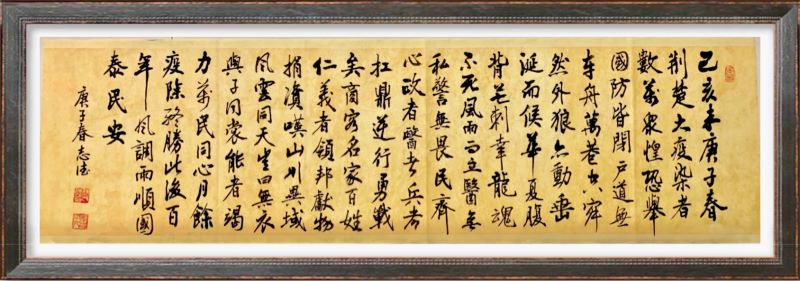 己亥末庚子春
荆楚大疫染者
數萬众惶恐舉
國防皆閉戶道無
车舟萬巷空寂
然外狼亦動垂
涎而候華夏腹
背芒刺幸龍魂
不死風雨而立醫無
私警無畏民齊
心政者醫者兵者
扛鼎逆行勇戰
矣商客名家百姓
仁義者領邦獻物
捐資嘆山川異域
風雲同天生曰無衣
與子同裳能者竭
力萬民同心月餘
疫除終勝此後百
年風調雨順國
泰民安
庚子春志